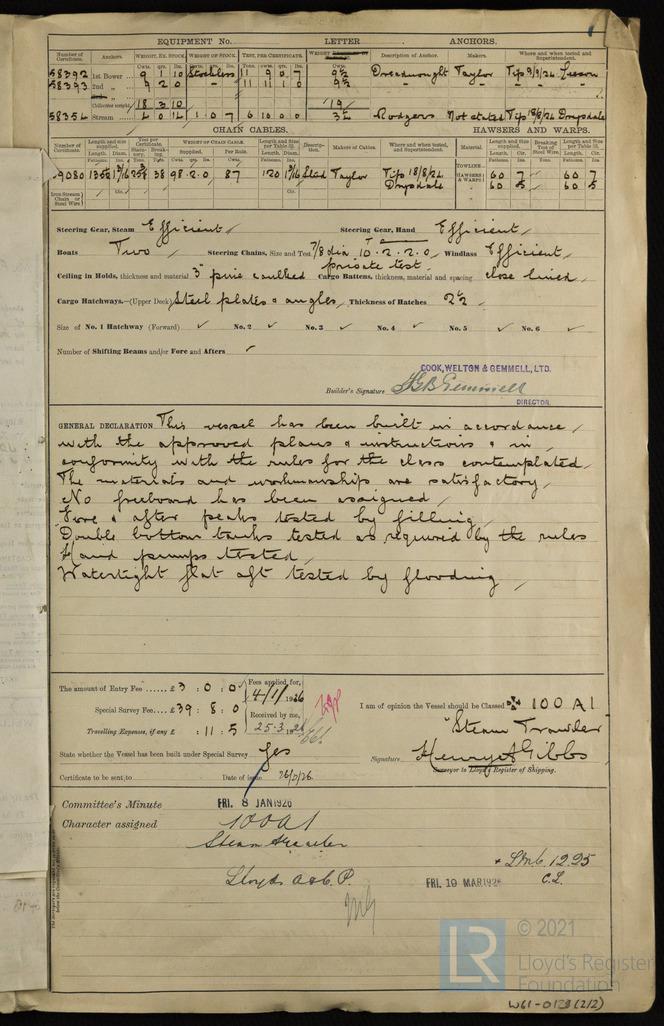 EQUIPMENT No. LETTER ANCHORS.
Number of Certificate. Anchors. WEIGHT, EX. STOCK. WEIGHT OF STOCK. TEST, PER CERTIFICATE. WEIGHT Description of Anchor. Makers. Where and when tested and Superintendent.
58392 1st Bower 9 1 10 Stockless 11 9 0 7 9½ Dreadnought Taylor Tip 9/9/24 Lesson
58393 2nd " 9 2 0 " 11 11 1 0 9½
Collective weight 18 3 10 19
58354 Stream 6 10 0 0 Rodgers Not stated Tip 18/8/24 Drysdale
CHAIN CABLES. HAWSERS AND WARPS.
Number of Certificate. Length and size supplied. Test per Certificate. WEIGHT OF CHAIN CABLE. Length and Size per Table 31. Description. Makers of Cables. Where and when tested, and Superintendent. Material. Length and Size supplied. Breaking Test of Steel Wire. Length and Size per Table 31.
Length. Diam. Supplied. Per Rule. Length. Diam. TOWLINE Length. Cir. Length. Cir.
9080 38 98.2.0 87 120 1 1/16 Stud Taylor Tip 18/8/24 Drysdale HAWSERS & WARPS 60 7 60 7
60 5 60 5
Iron Stream Chain or Steel Wire
Steering Gear, Steam Efficient Steering Gear, Hand Efficient
Boats Two Steering Chains, Size and Test 7/8 dia 10.2.2.0 private test. Windlass Efficient
Ceiling in Holds, thickness and material 3" pine caulked Cargo Battens, thickness, material and spacing close lined
Cargo Hatchways.—(Upper Deck) Steel plates & angles Thickness of Hatches 2½
Size of No. 1 Hatchway (Forward) ✓ No. 2 ✓ No. 3 ✓ No. 4 ✓ No. 5 ✓ No. 6 ✓
Number of Shifting Beams and/or Fore and Afters ✓
COOK, WELTON & GEMMELL, LTD.
Builder's Signature Gemmell
DIRECTOR.
GENERAL DECLARATION This vessel has been built in accordance
with the approved plans & instructions & in
conformity with the rules for the class contemplated
The materials and workmanship are satisfactory
No freeboard has been assigned
Fore & after peaks tested by filling
Double bottom tanks tested as required by the rules
Hand pumps tested
Watertight flat aft tested by flooding
The amount of Entry Fee ...... £ 3 : 0 : 0
Fees applied for, 4/1/1926
Special Survey Fee.... £ 39 : 8 : 0
Received by me, 25.3.1926
Travelling Expenses, if any £ : 11 : 5
I am of opinion the Vessel should be Classed ✠ 100 A1
"Steam Trawler
State whether the Vessel has been built under Special Survey Yes
Signature Henry A Gibbs
Surveyor to Lloyd's Register of Shipping.
Certificate to be sent to Date of issue 26/3/26
Committee's Minute FRI. 8 JAN 1926
Character assigned 100A1
Steam Trawler
+ LMC 12.25
C.L.
Lloyds A & C. P.
FRI. 19 MAR 1926
LR
© 2021
Lloyd's Register
Foundation
W61-0138 (2/2)